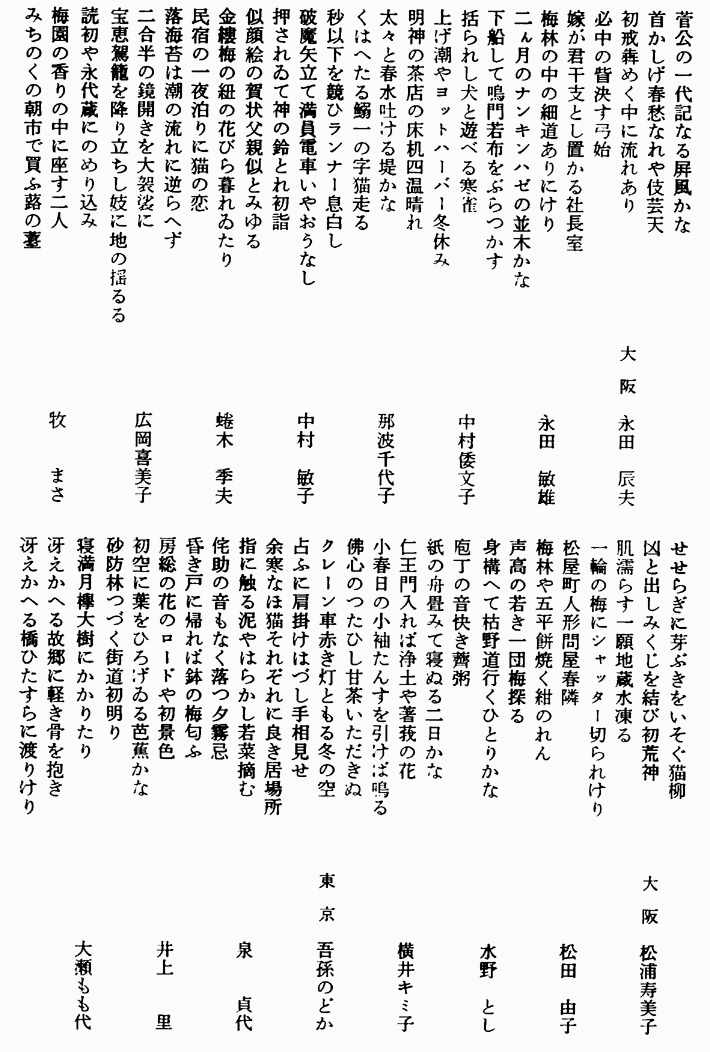 菅公の一代記なる屏風かな
首かしげ春愁なれや伎芸天
初戎犇めく中に流れあり
大阪 永田 辰夫
必中の眥決す弓始
嫁が君干支とし置かる社長室
梅林の中の細道ありにけり
永田 敏雄
二ヵ月のナンキンハゼの並木かな
下船して鳴門若布をぶらつかす
括られし犬と遊べる寒雀
中村倭文子
上げ潮やヨットハーバー冬休み
明神の茶店の床机四温晴れ
太々と春水吐ける堤かな
那波千代子
くはへたる鰯一の字猫走る
秒以下を競ひランナー息白し
破魔矢立て満員電車いやおうなし
中村 敏子
押されゐて神の鈴とれ初詣
似顔絵の賀状父親似とみゆる
金縷梅の紐の花びら暮れゐたり
蜷木 季夫
民宿の一夜泊りに猫の恋
落海苔は潮の流れに逆らへず
二合半の鏡開きを大袈裟に
広岡喜美子
宝恵駕籠を降り立ちし妓に地の揺るる
読初や永代蔵にのめり込み
梅園の香りの中に座す二人
牧 まさ
みちのくの朝市で買ふ蕗の薹
せせらぎに芽ぶきをいそぐ猫柳
凶と出しみくじを結び初荒神
大阪 松浦寿美子
肌濡らす一願地蔵水凍る
一輪の梅にシャッター切られけり
松屋町人形問屋春隣
松田 由子
梅林や五平餅焼く紺のれん
声高の若き一団梅探る
身構へて枯野道行くひとりかな
水野 とし
庖丁の音快き薺粥
紙の舟畳みて寝ぬる二日かな
仁王門入れば浄土や著莪の花
横井キミ子
小春日の小袖たんすを引けば鳴る
佛心のつたひし甘茶いただきぬ
クレーン車赤き灯ともる冬の空
東京 吾孫のどか
占ふに肩掛けはづし手相見せ
余寒なほ猫それぞれに良き居場所
指に触る泥やはらかし若菜摘む
泉 貞代
侘助の音もなく落つ夕霧忌
昏き戸に帰れば鉢の梅匂ふ
房総の花のロードや初景色
井上 里
初空に葉をひろげゐる芭蕉かな
砂防林つづく街道初明り
寝満月欅大樹にかかりたり
大瀬もも代
冴えかへる故郷に軽き骨を抱き
冴えかへる橋ひたすらに渡りけり